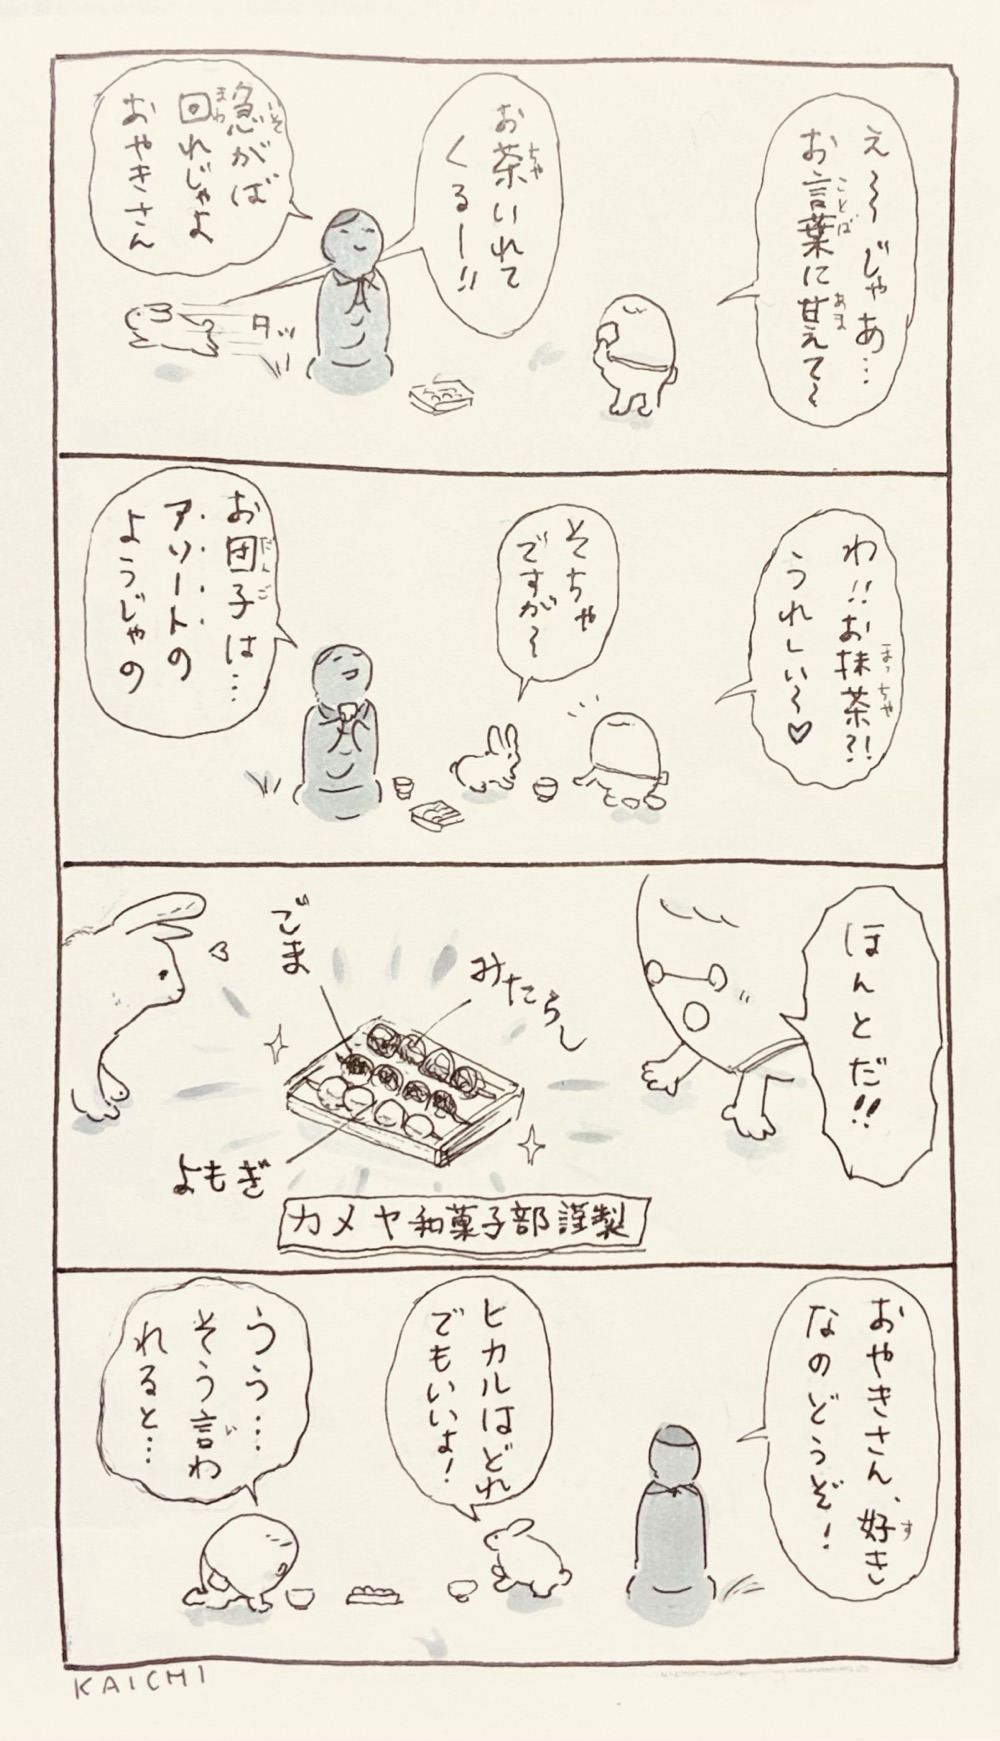 え〜〜じゃあ…
お言葉に甘えて〜
ことば
あま
お茶いれて
くるー!!
ちゃ
急がば
回れじゃよ
おやきさん
いそ
まわ
タッ
わ!!お抹茶?!
うれしい〜♡
まっちゃ
そちゃ
ですが〜
お団子は…
アソートの
ようじゃの
だんご
ほんとだ!!
みたらし
ごま
よもぎ
カメヤ和菓子部謹製
おやきさん、好き
なのどうぞ!
す
ヒカルはどれ
でもいいよ!
うう…
そう言わ
れると…
い
KAICHI